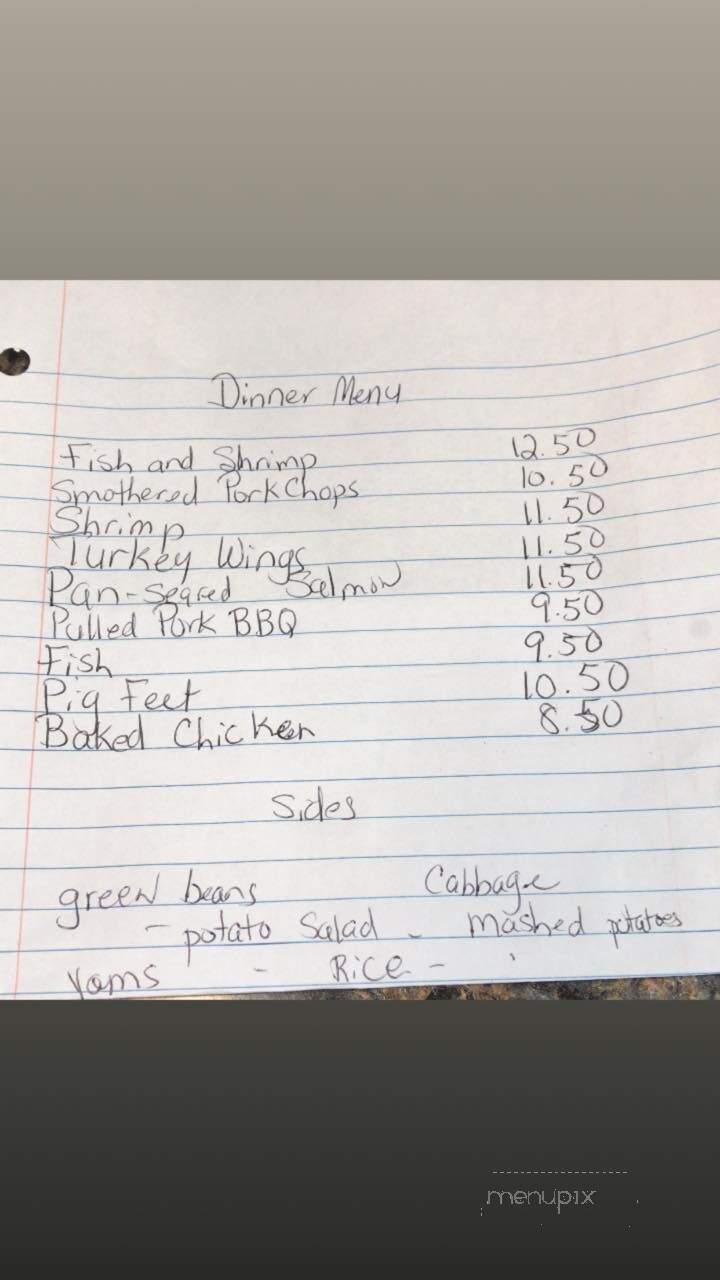 Dinner Menu
Fish and Shrimp 12.50
Smothered Pork Chops 10.50
Shrimp 11.50
Turkey Wings 11.50
Pan-Seared Salmon 11.50
Pulled Pork BBQ 9.50
Fish 9.50
Pig Feet 10.50
Baked Chicken 8.50
Sides
green beans Cabbage
- potato Salad - mashed potatoes
Yams - Rice -
menupix